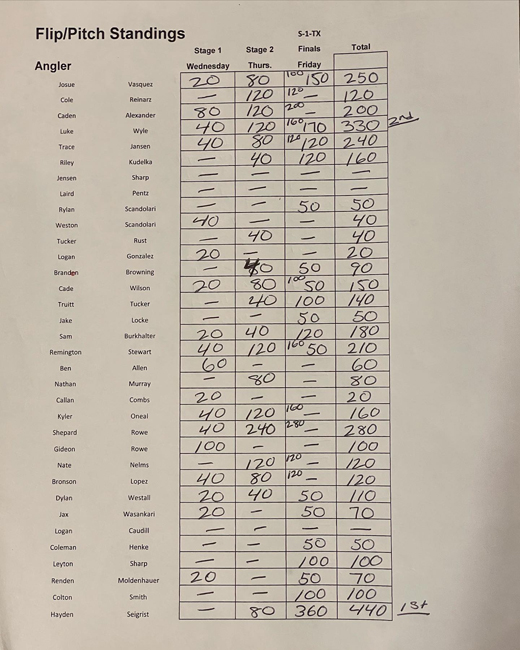 Flip/Pitch Standings
S-1-TX
Stage 1 Stage 2 Finals Total
Angler Wednesday Thurs. Friday
Josue Vasquez 20 80 100 150 250
Cole Reinarz — 120 120 — 120
Caden Alexander 80 120 200 — 200
Luke Wyle 40 120 160 170 330 2nd
Trace Jansen 40 80 120 120 240
Riley Kudelka — 40 120 160
Jensen Sharp — — — —
Laird Pentz — — — —
Rylan Scandolari — — 50 50
Weston Scandolari 40 — — 40
Tucker Rust — 40 — 40
Logan Gonzalez 20 — — 20
Branden Browning — 40 50 90
Cade Wilson 20 80 100 50 150
Truitt Tucker — 40 100 140
Jake Locke — — 50 50
Sam Burkhalter 20 40 120 180
Remington Stewart 40 120 160 50 210
Ben Allen 60 — — 60
Nathan Murray — 80 — 80
Callan Combs 20 — — 20
Kyler Oneal 40 120 160 — 160
Shepard Rowe 40 240 280 — 280
Gideon Rowe 100 — — 100
Nate Nelms — 120 120 — 120
Bronson Lopez 40 80 120 — 120
Dylan Westall 20 40 50 110
Jax Wasankari 20 — 50 70
Logan Caudill — — — —
Coleman Henke — — 50 50
Leyton Sharp — — 100 100
Renden Moldenhauer 20 — 50 70
Colton Smith — — 100 100
Hayden Seigrist — 80 360 440 1st